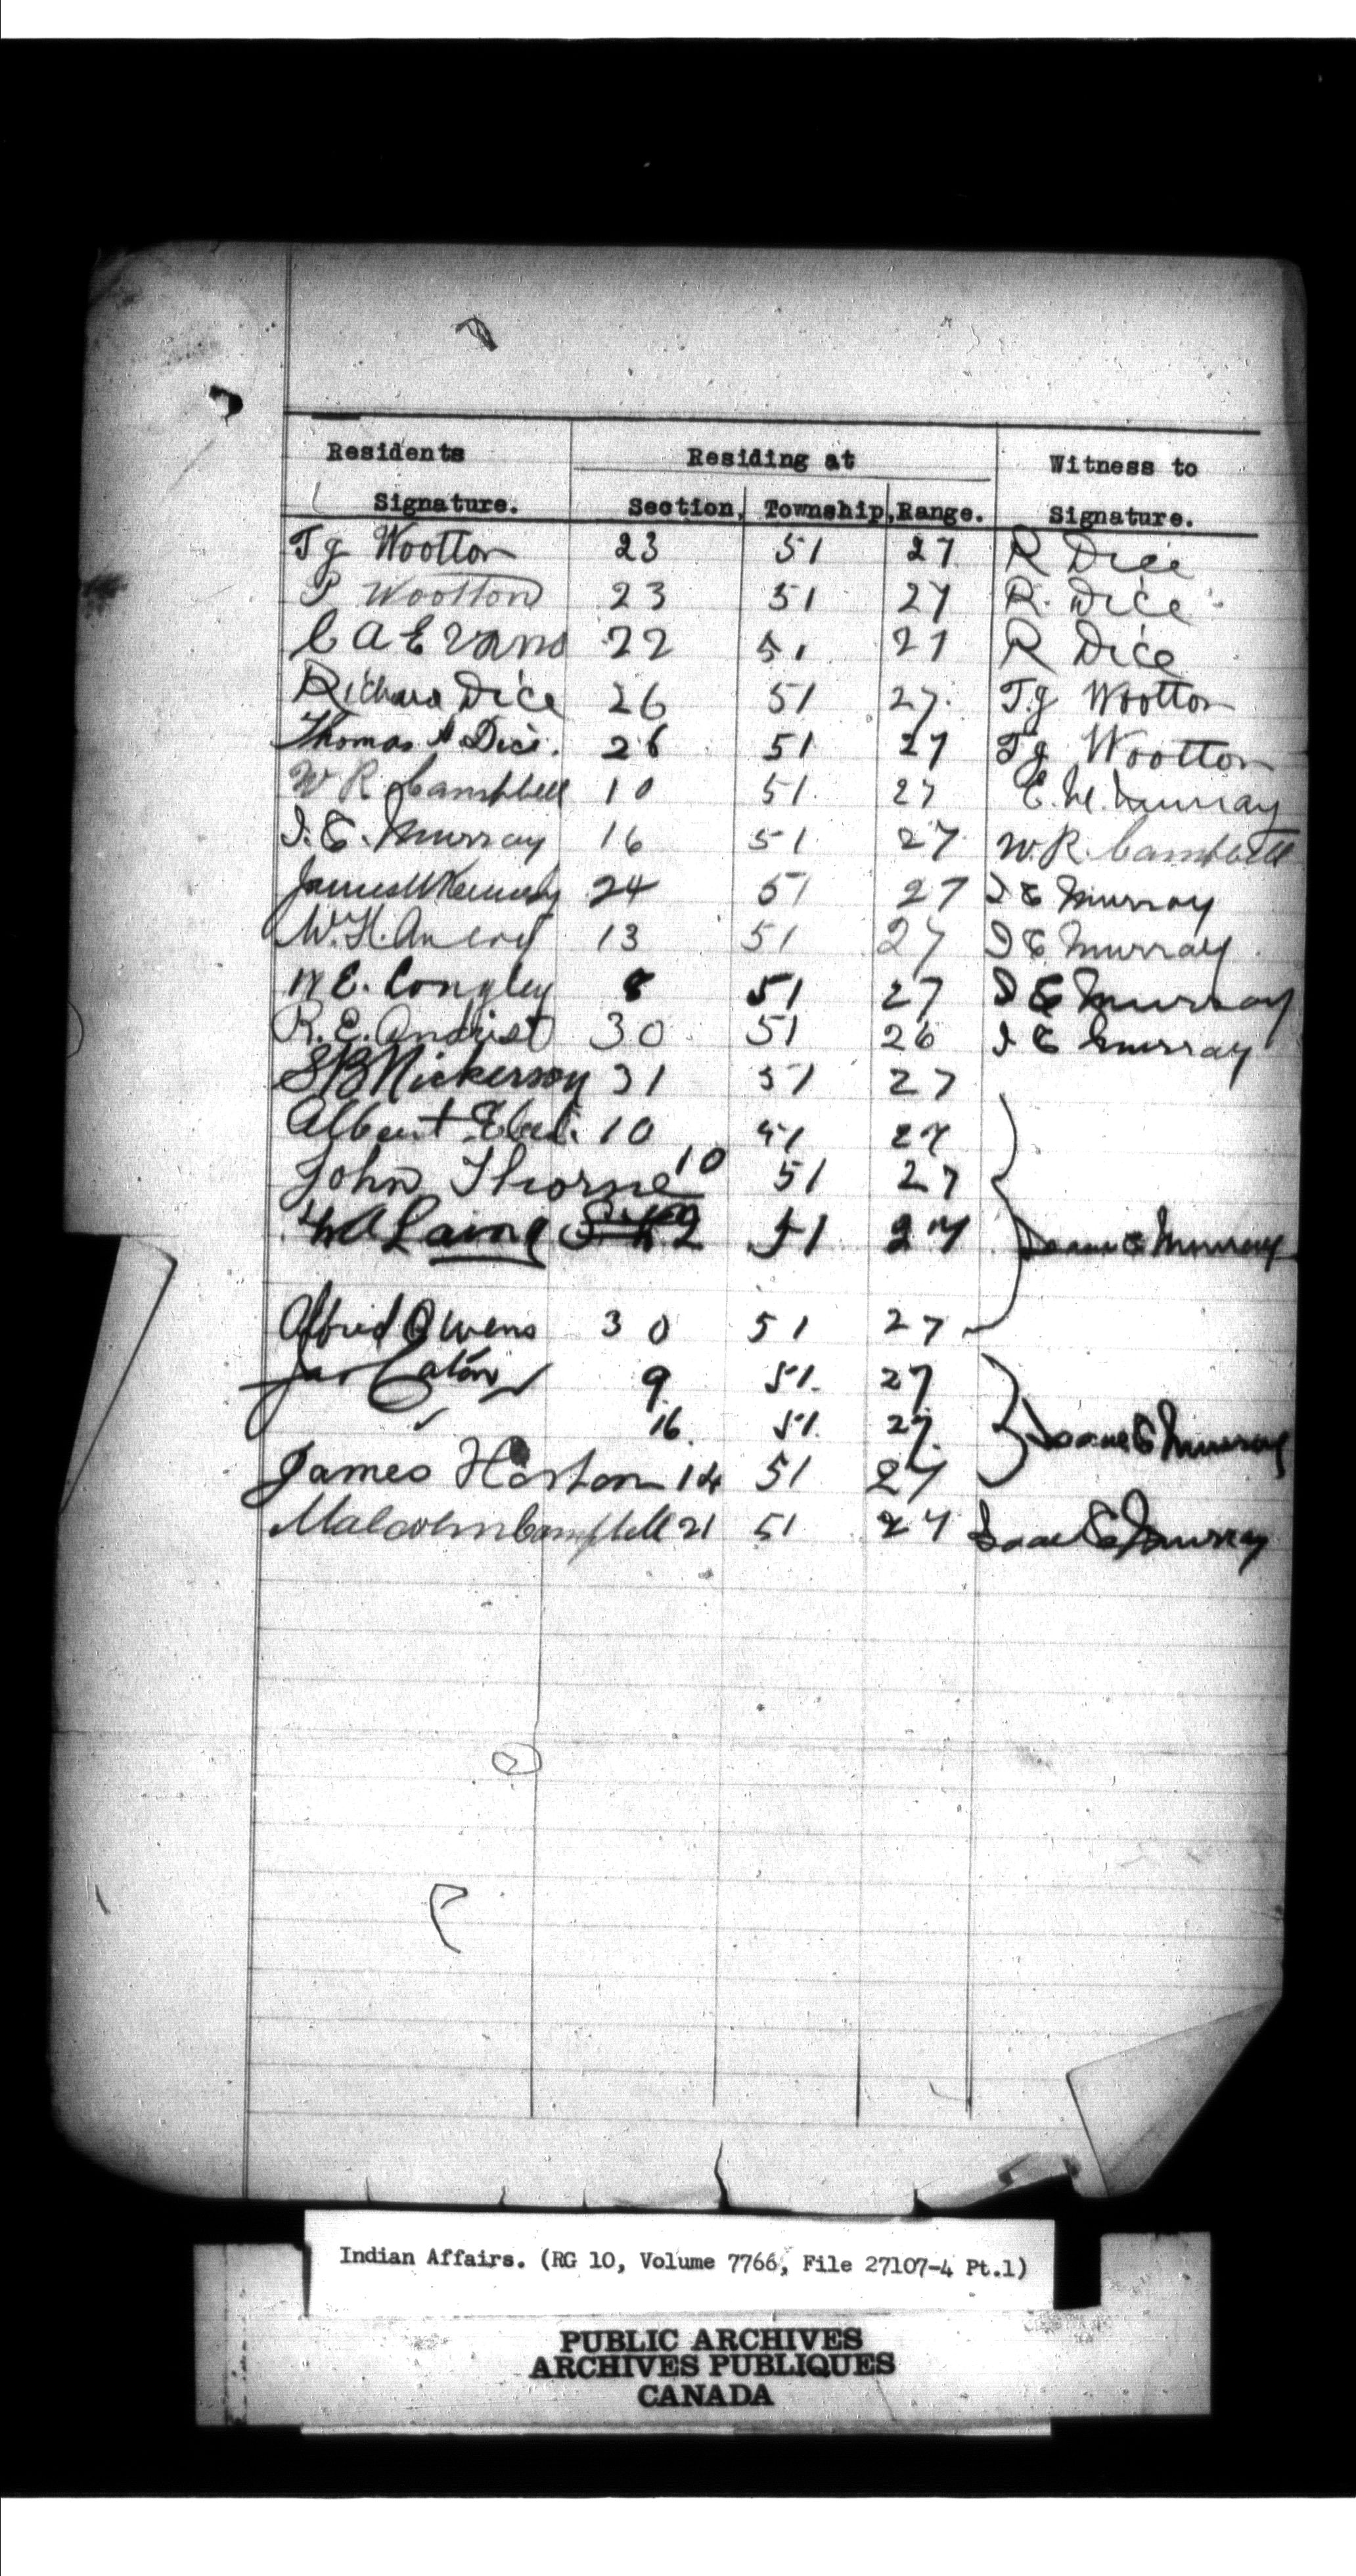 Residents Residing at Witness to
Signature. Section, Township, Range. Signature.
T g Wootton 23 51 27 R Dice
P Wootton 23 51 27 R. Dice
C A Evans 22 51 27 R Dice
Richard Dice 26 51 27. T.g Wootton
Thomas A Dice. 26 51 27 T g Wootton
W R Campbell 10 51. 27 Murray
I. E. Murray 16 51 27 W.R. Campbell
James 24 51 27 I E Murray
W. H. 13 51 27 I E Murray
W E. Longley 8 51 27 I E Murray
R. E. Andrist 30 51 26 I E Murray
S B Nickerson 31 51 27
Albert 10 51 27
John Thorne 10 51 27
Laing 2 51 27 Isaac E Murray
Alfred Owens 30 51 27
Jas Eaton 9 51. 27
16. 51. 27. Isaac E Murray
James Horton 14 51 27
Malcolm Campbell 21 51 27 Isaac E Murray
Indian Affairs. (RG 10, Volume 7766, File 27107-4 Pt.1)
PUBLIC ARCHIVES
ARCHIVES PUBLIQUES
CANADA